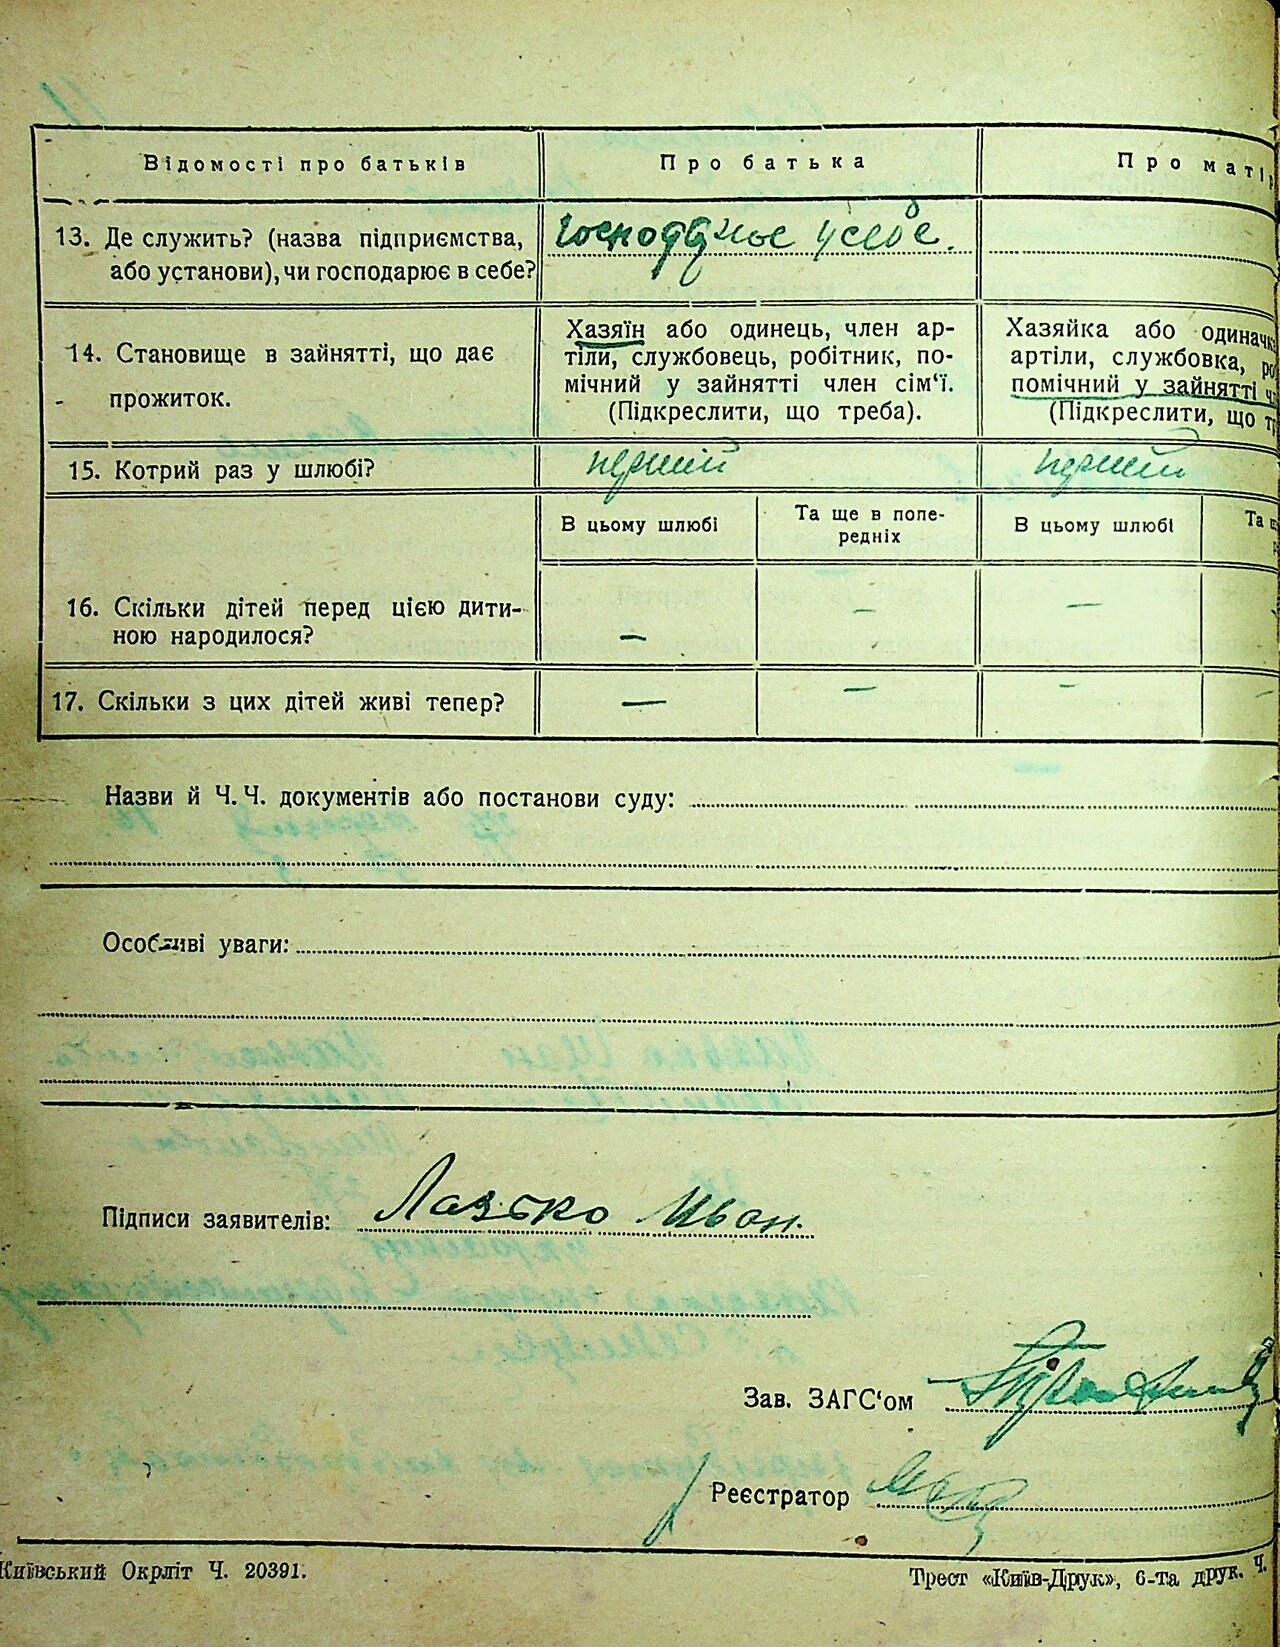 Відомості про батьків Про батька Про матір
13. Де служить? (назва підприємства, або установи), чи господарює в себе?
господарює у себе.
14. Становище в зайнятті, що дає прожиток.
Хазяїн або одинець, член ар-
тіли, службовець, робітник, по-
мічний у зайнятті член сім‘ї.
(Підкреслити, що треба).
Хазяйка або одиначка
артіли, службовка, ро
помічний у зайнятті ч
(Підкреслити, що тр
15. Котрий раз у шлюбі? перший перший
В цьому шлюбі Та ще в попе-
редніх В цьому шлюбі Та щ
16. Скільки дітей перед цією дити-
ною народилося? — — —
17. Скільки з цих дітей живі тепер? — — - -
Назви й Ч. Ч. документів або постанови суду:
Особливі уваги:
Підписи заявителів: Лазько Иван.
Зав. ЗАГС‘ом
Реєстратор
Київський Окрліт Ч. 20391.
Трест «Київ-Друк», 6-та друк. Ч.